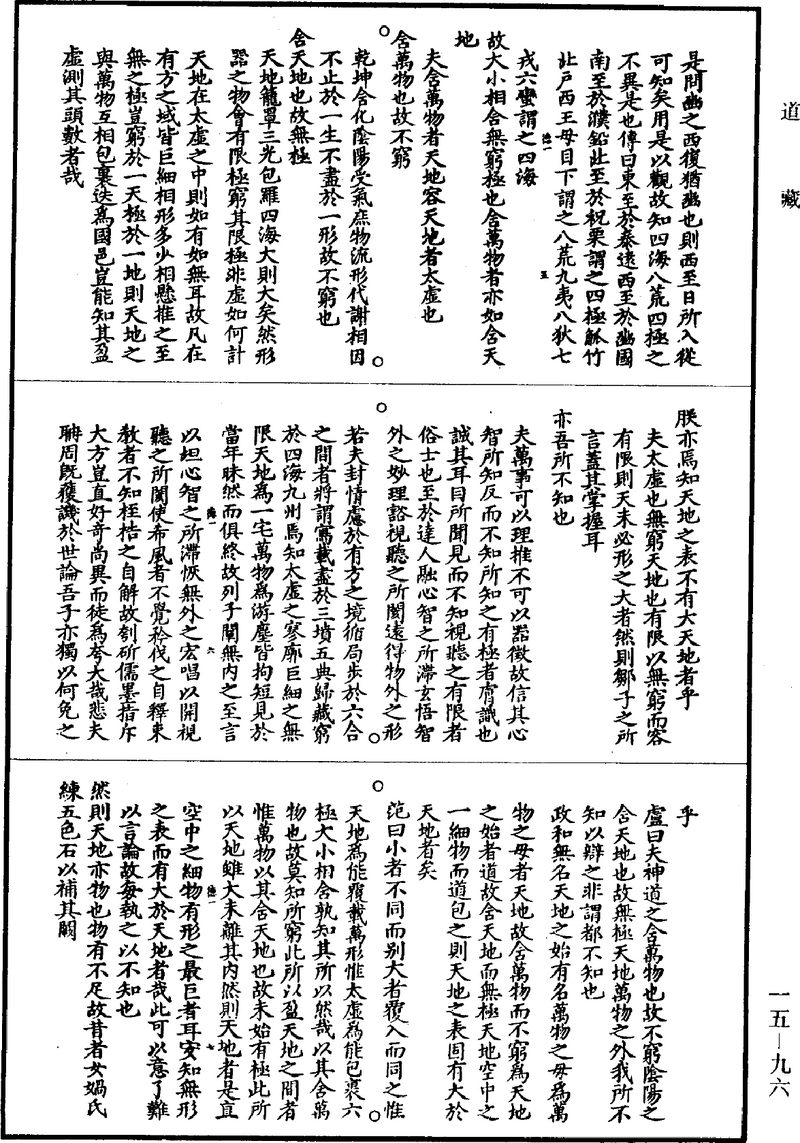 道藏
是問豳之西復猶豳也則西至日所入從
可知矣用是以觀故知四海八荒四極之
不異是也傳曰東至於泰遠西至於豳國
南至於濮鉛北至於祝栗謂之四極觚竹
北戶西王母日下謂之八荒九夷八狄七
戎六蠻謂之四海
故大小相含無窮極也含萬物者亦如含天
地
夫含萬物者天地容天地者太虛也
含萬物也故不窮
乾坤含化陰陽受氣庶物流形代謝相因
不止於一生不盡於一形故不窮也
含天地也故無極
天地籠罩三光包羅四海大則大矣然形
器之物會有限極窮其限極非虛如何計
天地在太虛之中則如有如無耳故凡在
有方之域皆巨細相形多少相懸推之至
無之極豈窮於一天極於一地則天地之
與萬物互相包裹迭為國邑豈能知其盈
虛測其頭數者哉
朕亦焉知天地之表不有大天地者乎
夫太虛也無窮天地也有限以無窮而容
有限則天未必形之大者然則鄒子之所
言蓋其掌握耳
亦吾所不知也
夫萬事可以理推不可以器徵故信其心
智所知反而不知所知之有極者膚識也
誠其耳目所聞見而不知視聽之有限者
俗士也至於達人融心智之所滯玄悟智
外之妙理豁視聽之所閡遠得物外之形
若夫封情慮於有方之境循局步於六合
之間者將謂寫載盡於三墳五典歸藏窮
於四海九州焉知太虛之寥廓巨細之無
限天地為一宅萬物為游塵皆拘短見於
當年昧然而俱終故列子闡無內之至言
以坦心智之所滯恢無外之宏唱以開視
聽之所閡使希風者不覺矜伐之自釋束
教者不知桎梏之自解故刳斫儒墨指斥
大方豈直好奇尚異而徒為夸大哉悲夫
聃周既獲譏於世論吾子亦獨以何免之
乎
盧曰夫神道之含萬物也故不窮陰陽之
含天地也故無極天地萬物之外我所不
知以辯之非謂都不知也
政和無名天地之始有名萬物之母為萬
物之母者天地故含萬物而不窮為天地
之始者道故含天地而無極天地空中之
一細物而道包之則天地之表固有大於
天地者矣
范曰小者不同而別大者覆入而同之惟
天地為能覆載萬形惟太虛為能包裹六
極大小相含孰知其所以然哉以其含萬
物也故莫知所窮此所以盈天地之間者
惟萬物以其含天地也故未始有極此所
以天地雖大未離其內然則天地者是直
空中之細物有形之最巨者耳安知無形
之表而有大於天地者哉此可以意了難
以言論故每執之以不知也
然則天地亦物也物有不足故昔者女媧氏
練五色石以補其闕
一五—九六